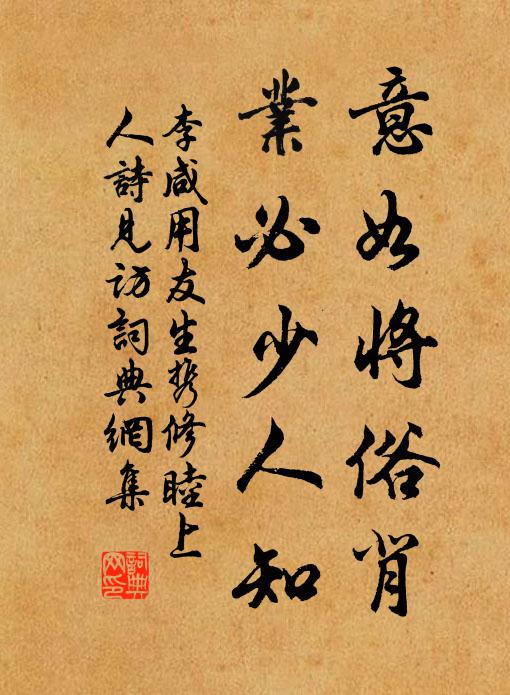 意如將俗肖
業必少人知
李咸用友生携修睦上
人詩見訪詞典網集
詞典
网印